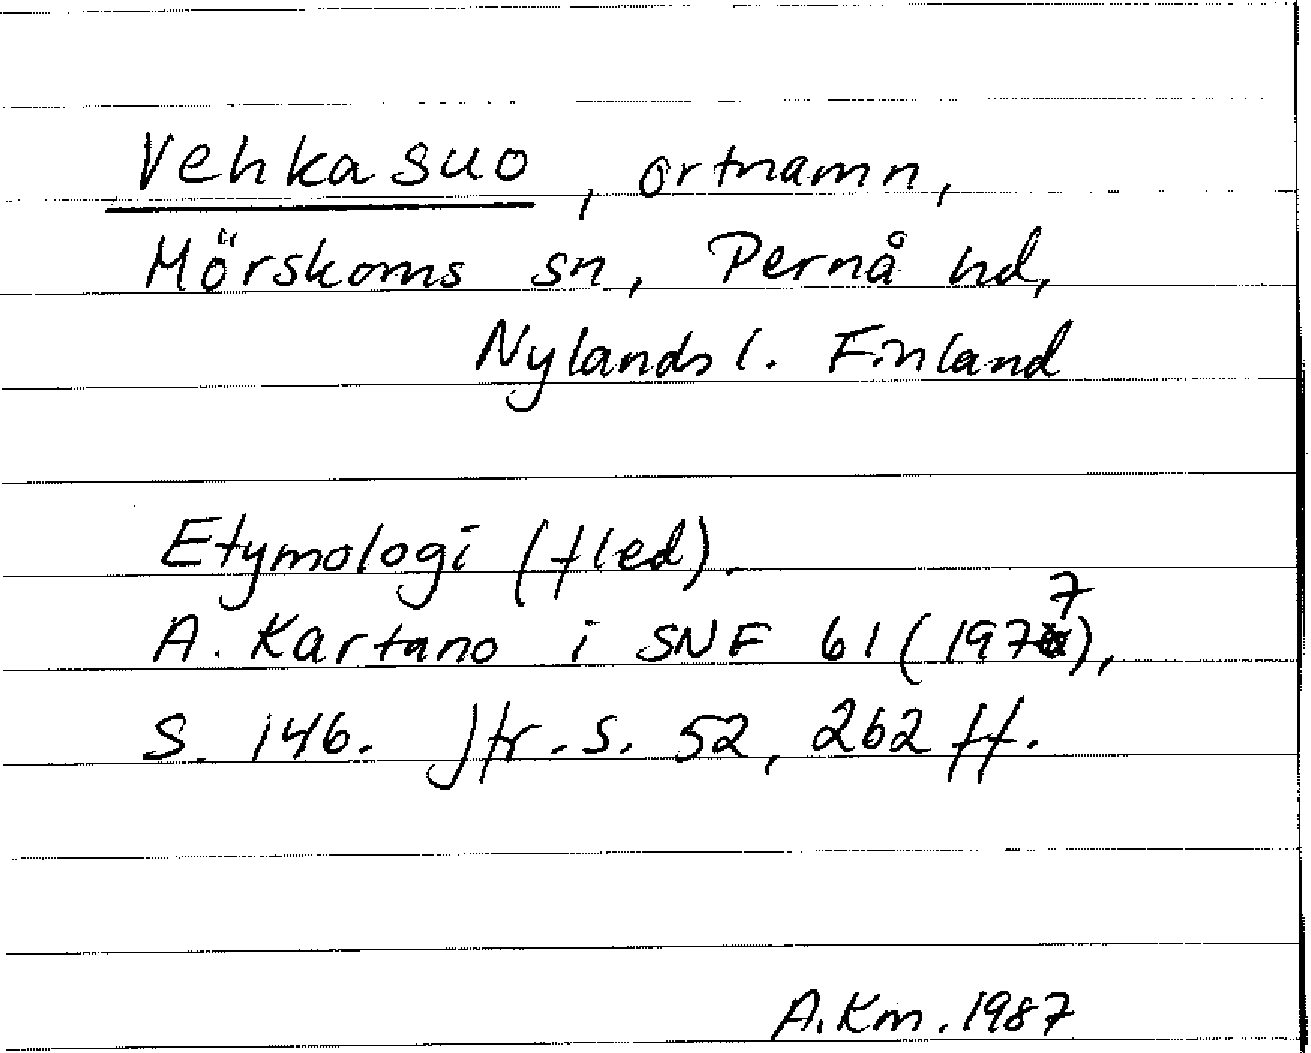 Vehkasuo, ortnamn,
Mörskoms sn, Pernå hd,
Nylands l. Finland
Etymologi (fled).
A. Kartano i SNF 61 (1977),
s. 146. Jfr. s. 52, 262 ff.
A. Km. 1987